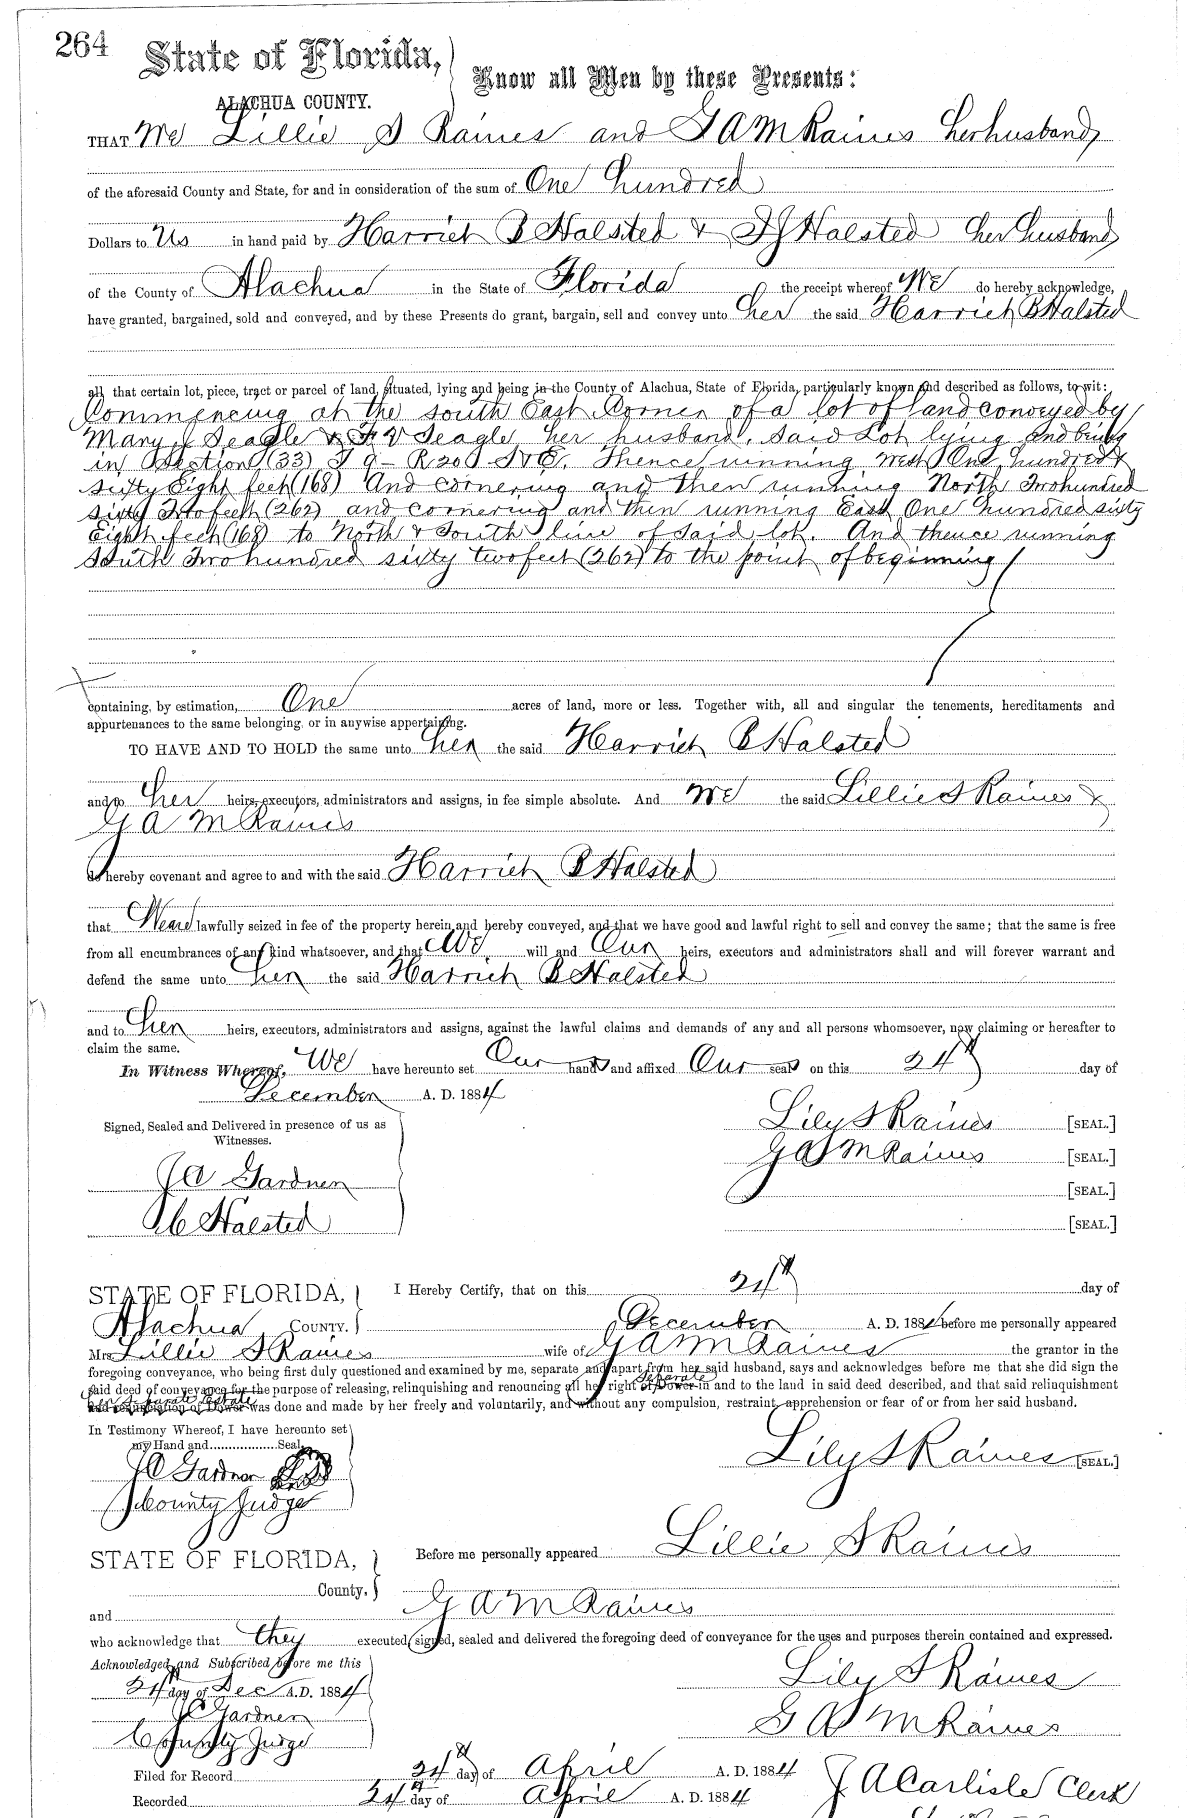 264 State of Florida,
Know all Men by these Presents:
ALACHUA COUNTY.
THAT We Lillie S Raines and G A M Raines her husband,
of the aforesaid County and State, for and in consideration of the sum of One hundred
Dollars to Us in hand paid by Harriet B Halsted & Halsted her husband
of the County of Alachua in the State of Florida the receipt whereof We do hereby acknowledge,
have granted, bargained, sold and conveyed, and by these Presents do grant, bargain, sell and convey unto her the said Harriet B Halsted
all, that certain lot, piece, tract or parcel of land, situated, lying and being in the County of Alachua, State of Florida, particularly known and described as follows, to wit:
Commencing at the South East Corner of a lot of land conveyed by
Mary J Seagle & F V Seagle her husband. Said Lot lying and being
in Section (33) T 9 - R 20 S & E. Thence running West One hundred &
sixty Eight feet (168) And cornering and then running North Two hundred
sixty Two feet (262) and cornering and then running East One hundred sixty
Eight feet (168) to North & South line of said lot. And thence running
South Two hundred sixty two feet (262) to the point of beginning
containing, by estimation, One acres of land, more or less. Together with, all and singular the tenements, hereditaments and
appurtenances to the same belonging, or in anywise appertaining.
TO HAVE AND TO HOLD the same unto her the said Harriet B Halsted
and to her heirs, executors, administrators and assigns, in fee simple absolute. And We the said Lillie S Raines &
G A M Raines
do hereby covenant and agree to and with the said Harriet B Halsted
that We are lawfully seized in fee of the property herein and hereby conveyed, and that we have good and lawful right to sell and convey the same; that the same is free
from all encumbrances of any kind whatsoever, and that We will and Our heirs, executors and administrators shall and will forever warrant and
defend the same unto her the said Harriet B Halsted
and to her heirs, executors, administrators and assigns, against the lawful claims and demands of any and all persons whomsoever, now claiming or hereafter to
claim the same.
In Witness Whereof, We have hereunto set Our hands and affixed Our seals on this 24th day of
December A. D. 1884
Signed, Sealed and Delivered in presence of us as
Witnesses.
Lily S Raines [SEAL.]
G A M Raines [SEAL.]
J A Gardner
[SEAL.]
Halsted
[SEAL.]
STATE OF FLORIDA, I Hereby Certify, that on this 24th day of
Alachua COUNTY. December A. D. 1884 before me personally appeared
Mrs Lillie S Raines wife of G A M Raines the grantor in the
foregoing conveyance, who being first duly questioned and examined by me, separate and apart from her said husband, says and acknowledges before me that she did sign the
said deed of conveyance for the purpose of releasing, relinquishing and renouncing all her right of Dower separate in and to the land in said deed described, and that said relinquishment
her separate estate
and renunciation of Dower was done and made by her freely and voluntarily, and without any compulsion, restraint, apprehension or fear of or from her said husband.
In Testimony Whereof, I have hereunto set
my Hand and Seal.
Lily S Raines [SEAL.]
J A Gardner
County Judge
STATE OF FLORIDA, Before me personally appeared Lillie S Raines
County.
and G A M Raines
who acknowledge that they executed, signed, sealed and delivered the foregoing deed of conveyance for the uses and purposes therein contained and expressed.
Acknowledged and Subscribed before me this
24th day of Dec A.D. 1884
Lily S Raines
J A Gardner
G A M Raines
County Judge
Filed for Record 24th day of April A. D. 1884
Recorded 24th day of April A. D. 1884
J A Carlisle Clerk